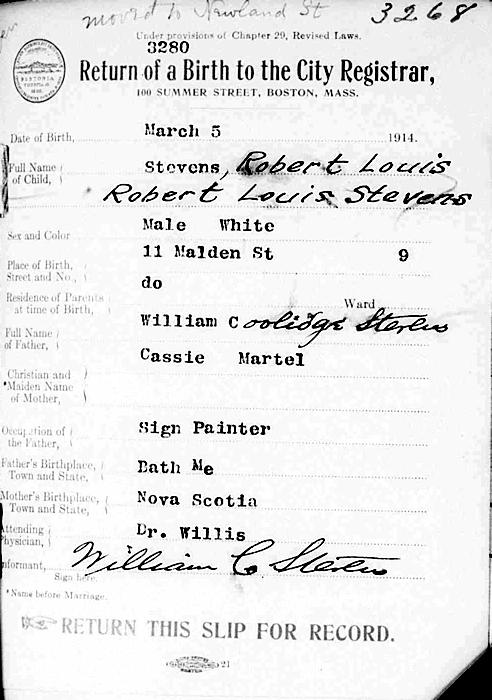 moved to Newland St 3268
Under provisions of Chapter 29, Revised Laws.
3280
Return of a Birth to the City Registrar,
100 SUMMER STREET, BOSTON, MASS.
Date of Birth, March 5 1914.
Full Name of Child, Stevens, Robert Louis
Robert Louis Stevens
Sex and Color Male White
Place of Birth, Street and No., 11 Malden St 9
Residence of Parents at time of Birth, do Ward
Full Name of Father, William Coolidge
Christian and *Maiden Name of Mother, Cassie Martel
Occupation of the Father, Sign Painter
Father's Birthplace, Town and State, Bath Me
Mother's Birthplace, Town and State, Nova Scotia
Attending Physician, Dr. Willis
Informant, William C
Sign here.
*Name before Marriage.
RETURN THIS SLIP FOR RECORD.
21